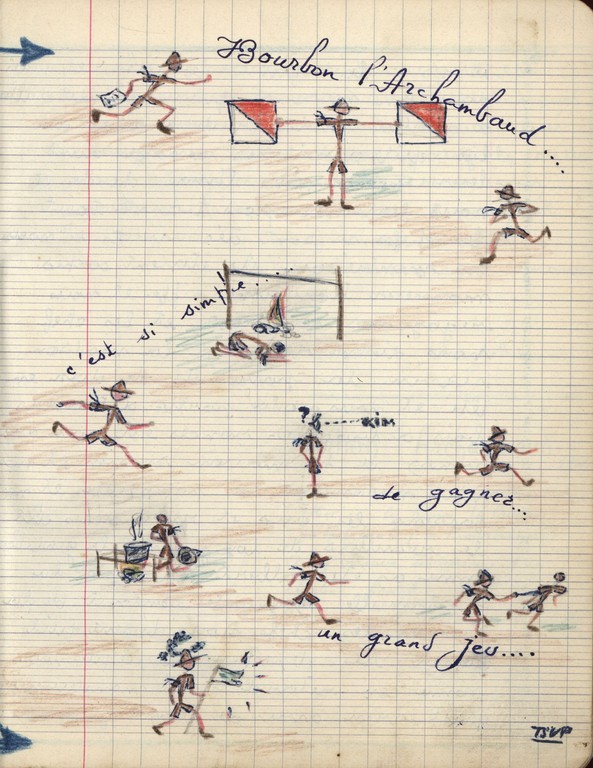 Bourbon l'Archambaud....
c'est si simple.....
? & ------ Kim
de gagner...
un grand jeu....
TSVP